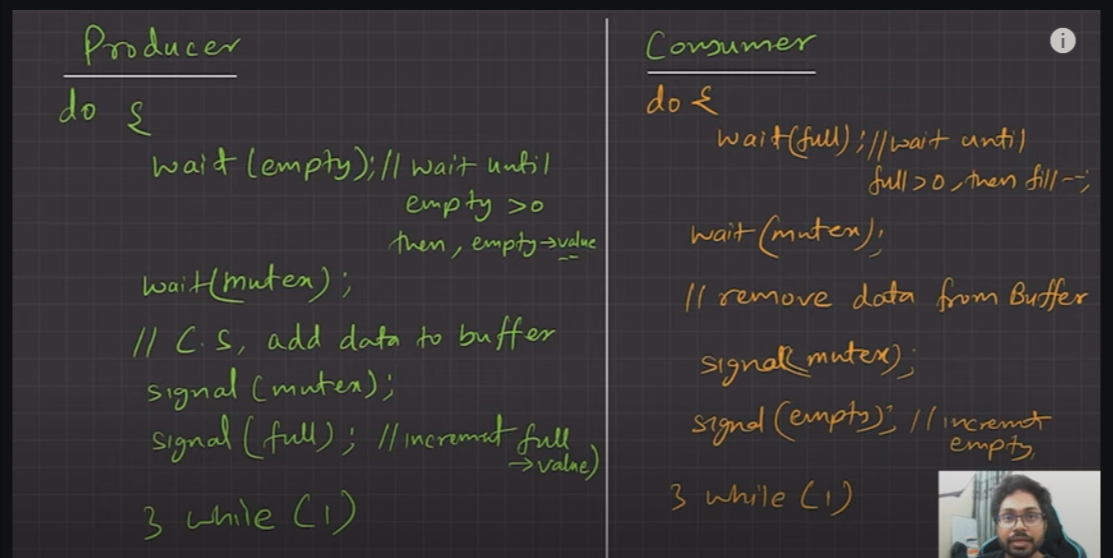 Producer
do {
wait(empty); // wait until
empty >0
then, empty→value
--
wait(mutex);
// C.S, add data to buffer
signal(mutex);
signal(full); // increment full
→value)
} while (1)
Consumer
do {
wait(full); // wait until
full>0, then fill--;
wait(mutex);
// remove data from Buffer
signal(mutex);
signal(empty); // increment
empty,
} while (1)